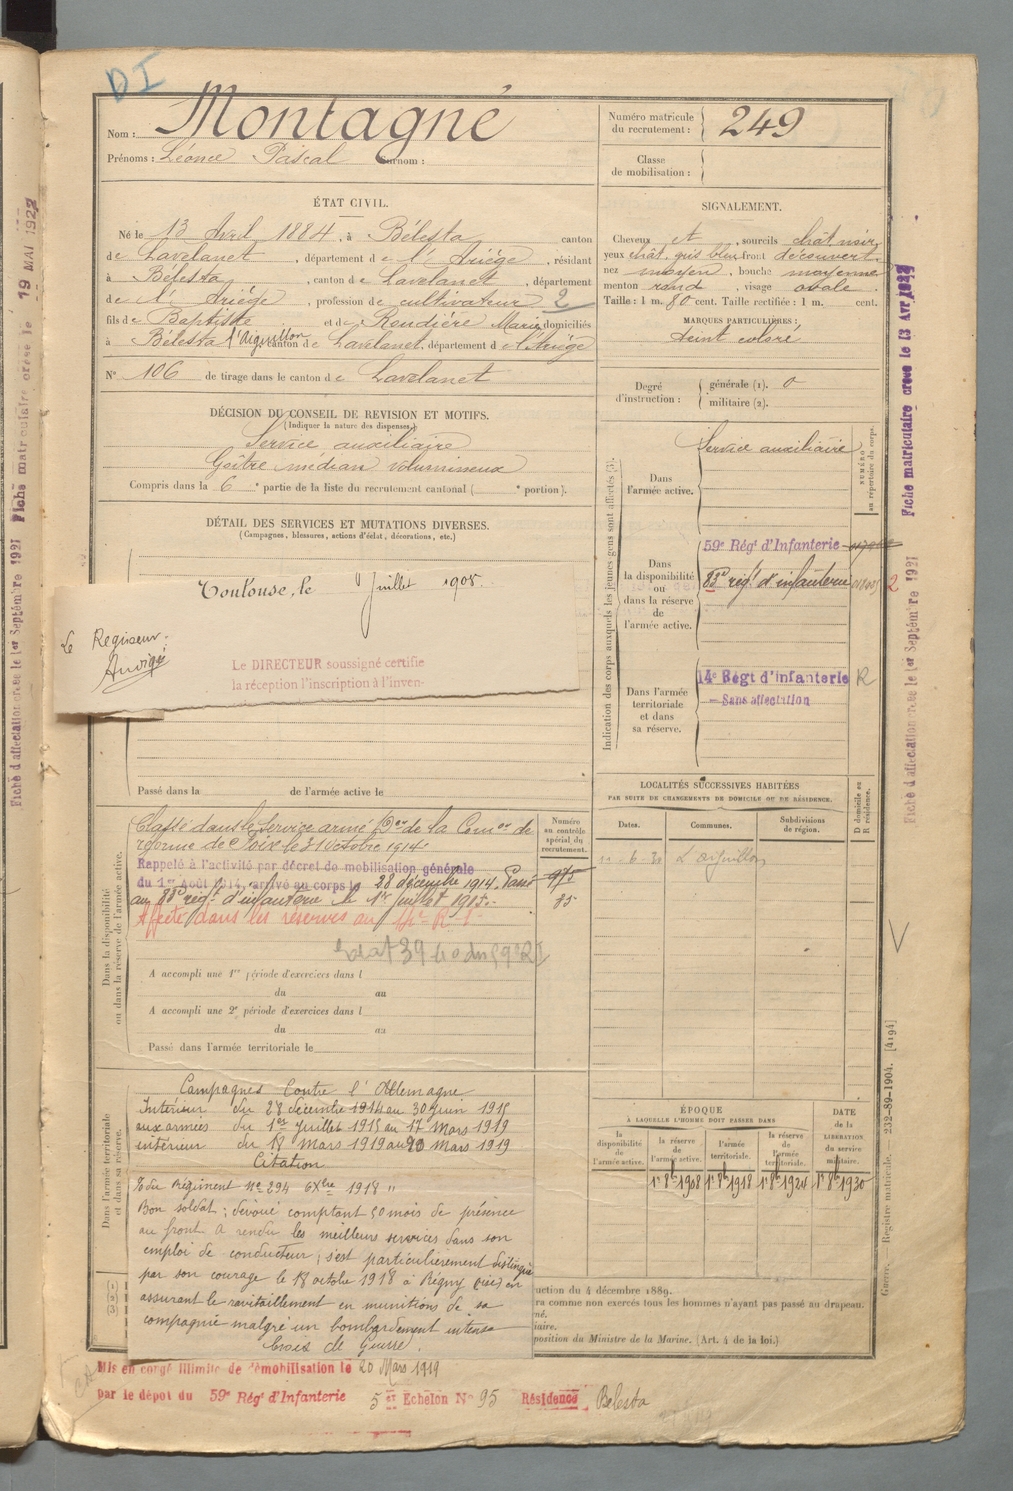 DI
Nom : Montagné
Prénoms : Léonce Pascal Surnom :
Numéro matricule du recrutement : 249
Classe de mobilisation :
ÉTAT CIVIL.
Né le 13 Avril 1884, à Bélesta canton
de Lavelanet, département de l'Ariège, résidant
à Bélesta, canton de Lavelanet, département
de l'Ariège, profession de cultivateur 2
fils de Baptiste et de Roudière Marie, domiciliés
à Bélesta l'Aiguillon canton de Lavelanet, département de l'Ariège
N° 106 de tirage dans le canton de Lavelanet
SIGNALEMENT.
Cheveux et, sourcils chât. noir,
yeux chât. gris bleu front découvert,
nez moyen, bouche moyenne
menton rond, visage ovale.
Taille : 1 m. 80 cent. Taille rectifiée : 1 m. cent.
MARQUES PARTICULIÈRES :
teint coloré
Degré d'instruction : générale (1). 0
militaire (2).
DÉCISION DU CONSEIL DE REVISION ET MOTIFS.
(Indiquer la nature des dispenses.)
Service auxiliaire
Goître médian volumineux
Compris dans la 6e partie de la liste du recrutement cantonal ( e portion).
DÉTAIL DES SERVICES ET MUTATIONS DIVERSES.
(Campagnes, blessures, actions d'éclat, décorations, etc.)
Toulouse, le Juillet 1905
Le Régisseur.
Le DIRECTEUR soussigné certifie
la réception l'inscription à l'inven-
Passé dans la de l'armée active le
Indication des corps auxquels les jeunes gens sont affectés (3).
NUMÉRO au répertoire du corps.
Dans l'armée active.
Service auxiliaire
Dans la disponibilité ou dans la réserve de l'armée active.
59e Régt d'Infanterie
83e régt d'infanterie
2
Dans l'armée territoriale et dans sa réserve.
14e Régt d'infanterie R
— Sans affectation
LOCALITÉS SUCCESSIVES HABITÉES
PAR SUITE DE CHANGEMENTS DE DOMICILE OU DE RÉSIDENCE.
D domicile ou R résidence.
Dates. Communes. Subdivisions de région.
L'aiguillon
Dans la disponibilité ou dans la réserve de l'armée active.
Numéro au contrôle spécial du recrutement.
Classé dans le Service armé Don de la Comon de
réforme de Foix le 31 Octobre 1914.
Rappelé à l'activité par décret de mobilisation générale
du 1er Août 1914, arrivé au corps le 28 décembre 1914. Passé
au 83e régt d'infanterie le 1er Juillet 1915.
975
85
Affecté dans les réserves au
A accompli une 1re période d'exercices dans l
du au
A accompli une 2e période d'exercices dans l
du au
Passé dans l'armée territoriale le
Dans l'armée territoriale et dans sa réserve.
Campagnes Contre l'Allemagne
Intérieur du 28 décembre 1914 au 30 Juin 1915
aux armées du 1er Juillet 1915 au 17 Mars 1919
intérieur du 18 Mars 1919 au 20 Mars 1919
Citation
O du Régiment No 294 6 Xbre 1918 "
Bon soldat ; dévoué comptant 50 mois de présence
au front. A rendu les meilleurs services dans son
emploi de conducteur ; s'est particulièrement distingué
par son courage le 18 octobre 1918 à Regny (oise) en
assurant le ravitaillement en munitions de sa
compagnie malgré un bombardement intense
Croix de Guerre.
ÉPOQUE
À LAQUELLE L'HOMME DOIT PASSER DANS
DATE DE LA LIBÉRATION du service militaire.
la disponibilité de l'armée active.
la réserve de l'armée active.
l'armée territoriale.
la réserve de l'armée territoriale.
1er 8b 1908 1er 8b 1918 1er 8b 1924 1er 8b 1930
(1)
(2)
(3)
uction du 4 décembre 1889.
ra comme non exercés tous les hommes n'ayant pas passé au drapeau.
né.
iaire.
position du Ministre de la Marine. (Art. 4 de la loi.)
Mis en congé illimité de démobilisation le 20 Mars 1919
par le dépôt du 59e Régt d'Infanterie 5 er Echelon No 95 Résidence Bélesta
Guerre. — Registre matricule. — 232-89-1904. [4194]
Fiche matriculaire créée le 13 Avr 1922
Fiche d'affectation créée le 1er Septembre 1921
Fiche matriculaire créée le 19 MAI 1922
Fiche d'affectation créée le 1er Septembre 1921